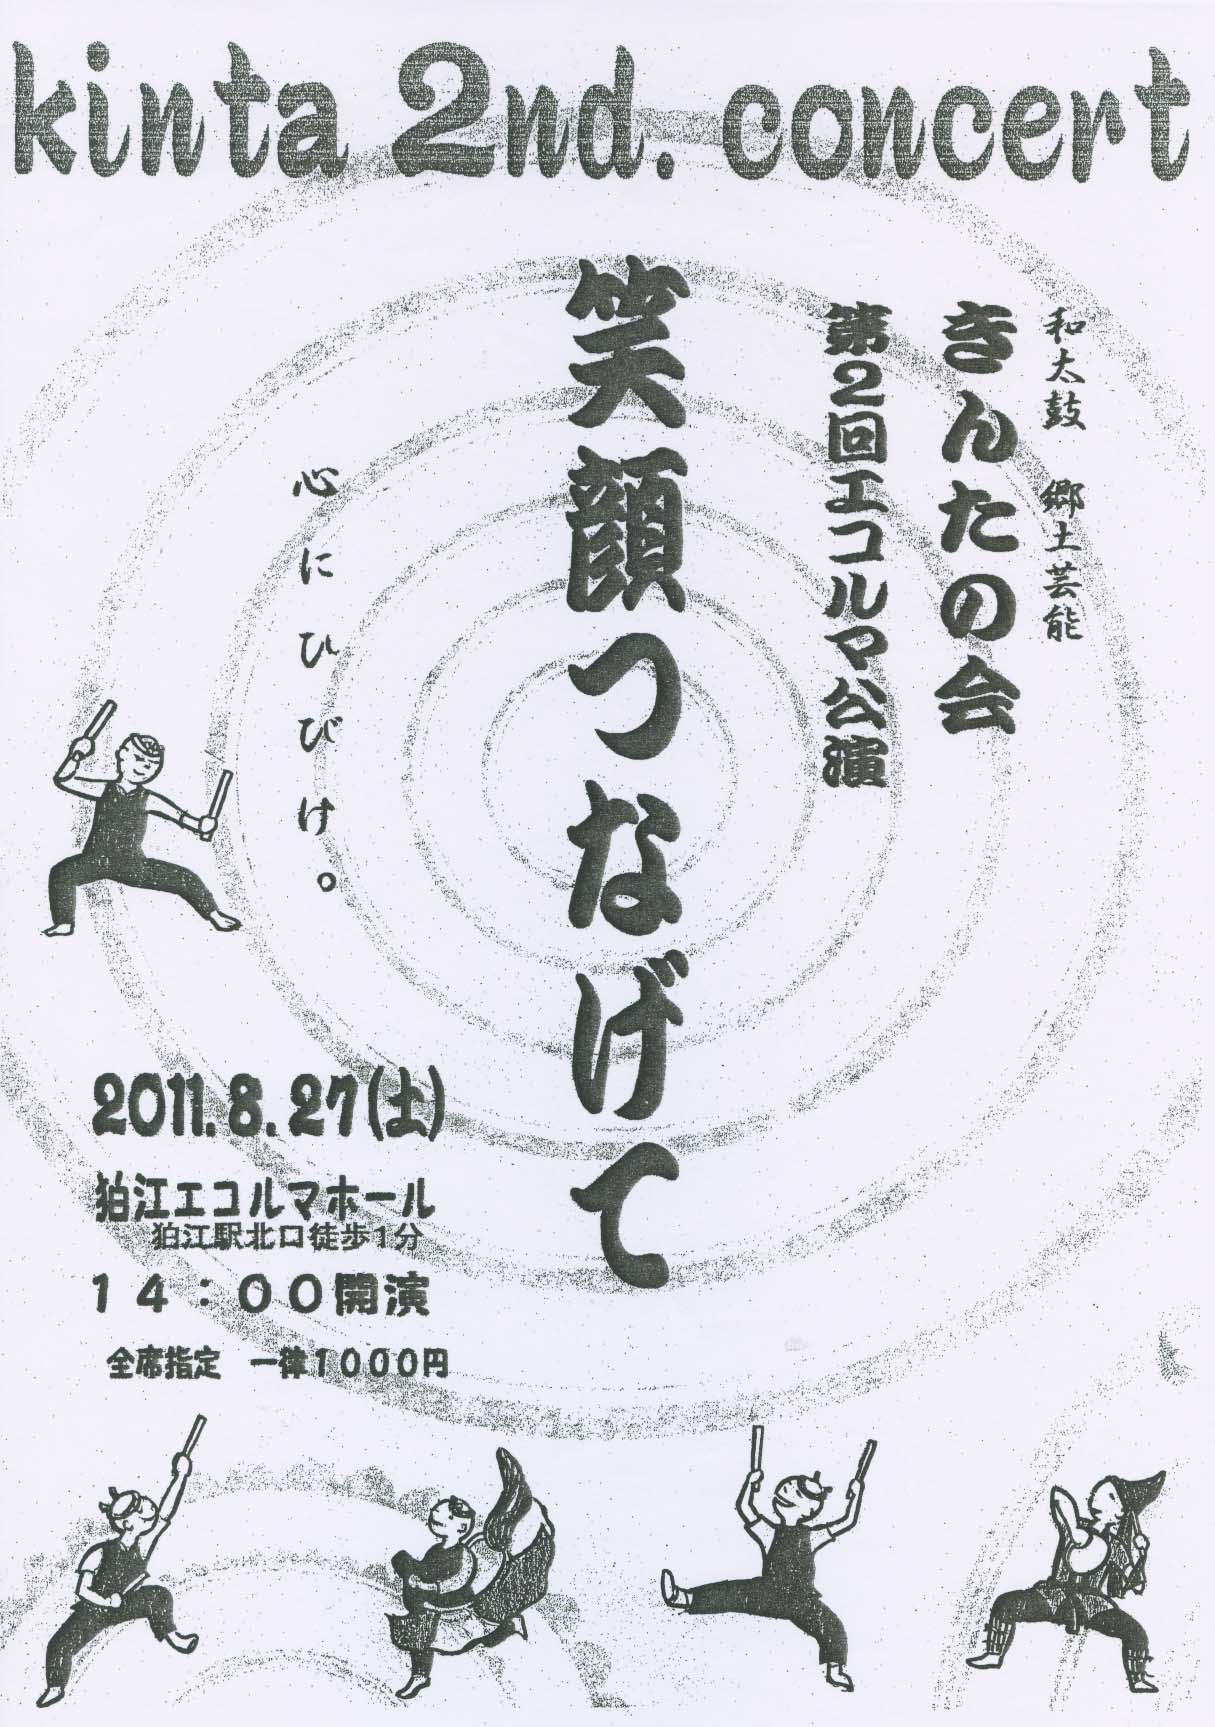 kinta 2nd. concert
和太鼓 郷土芸能
きんたの会
第2回エコルマ公演
笑顔つなげて
心にひびけ。
2011.8.27(土)
狛江エコルマホール
狛江駅北口徒歩1分
14：00開演
全席指定 一律1000円